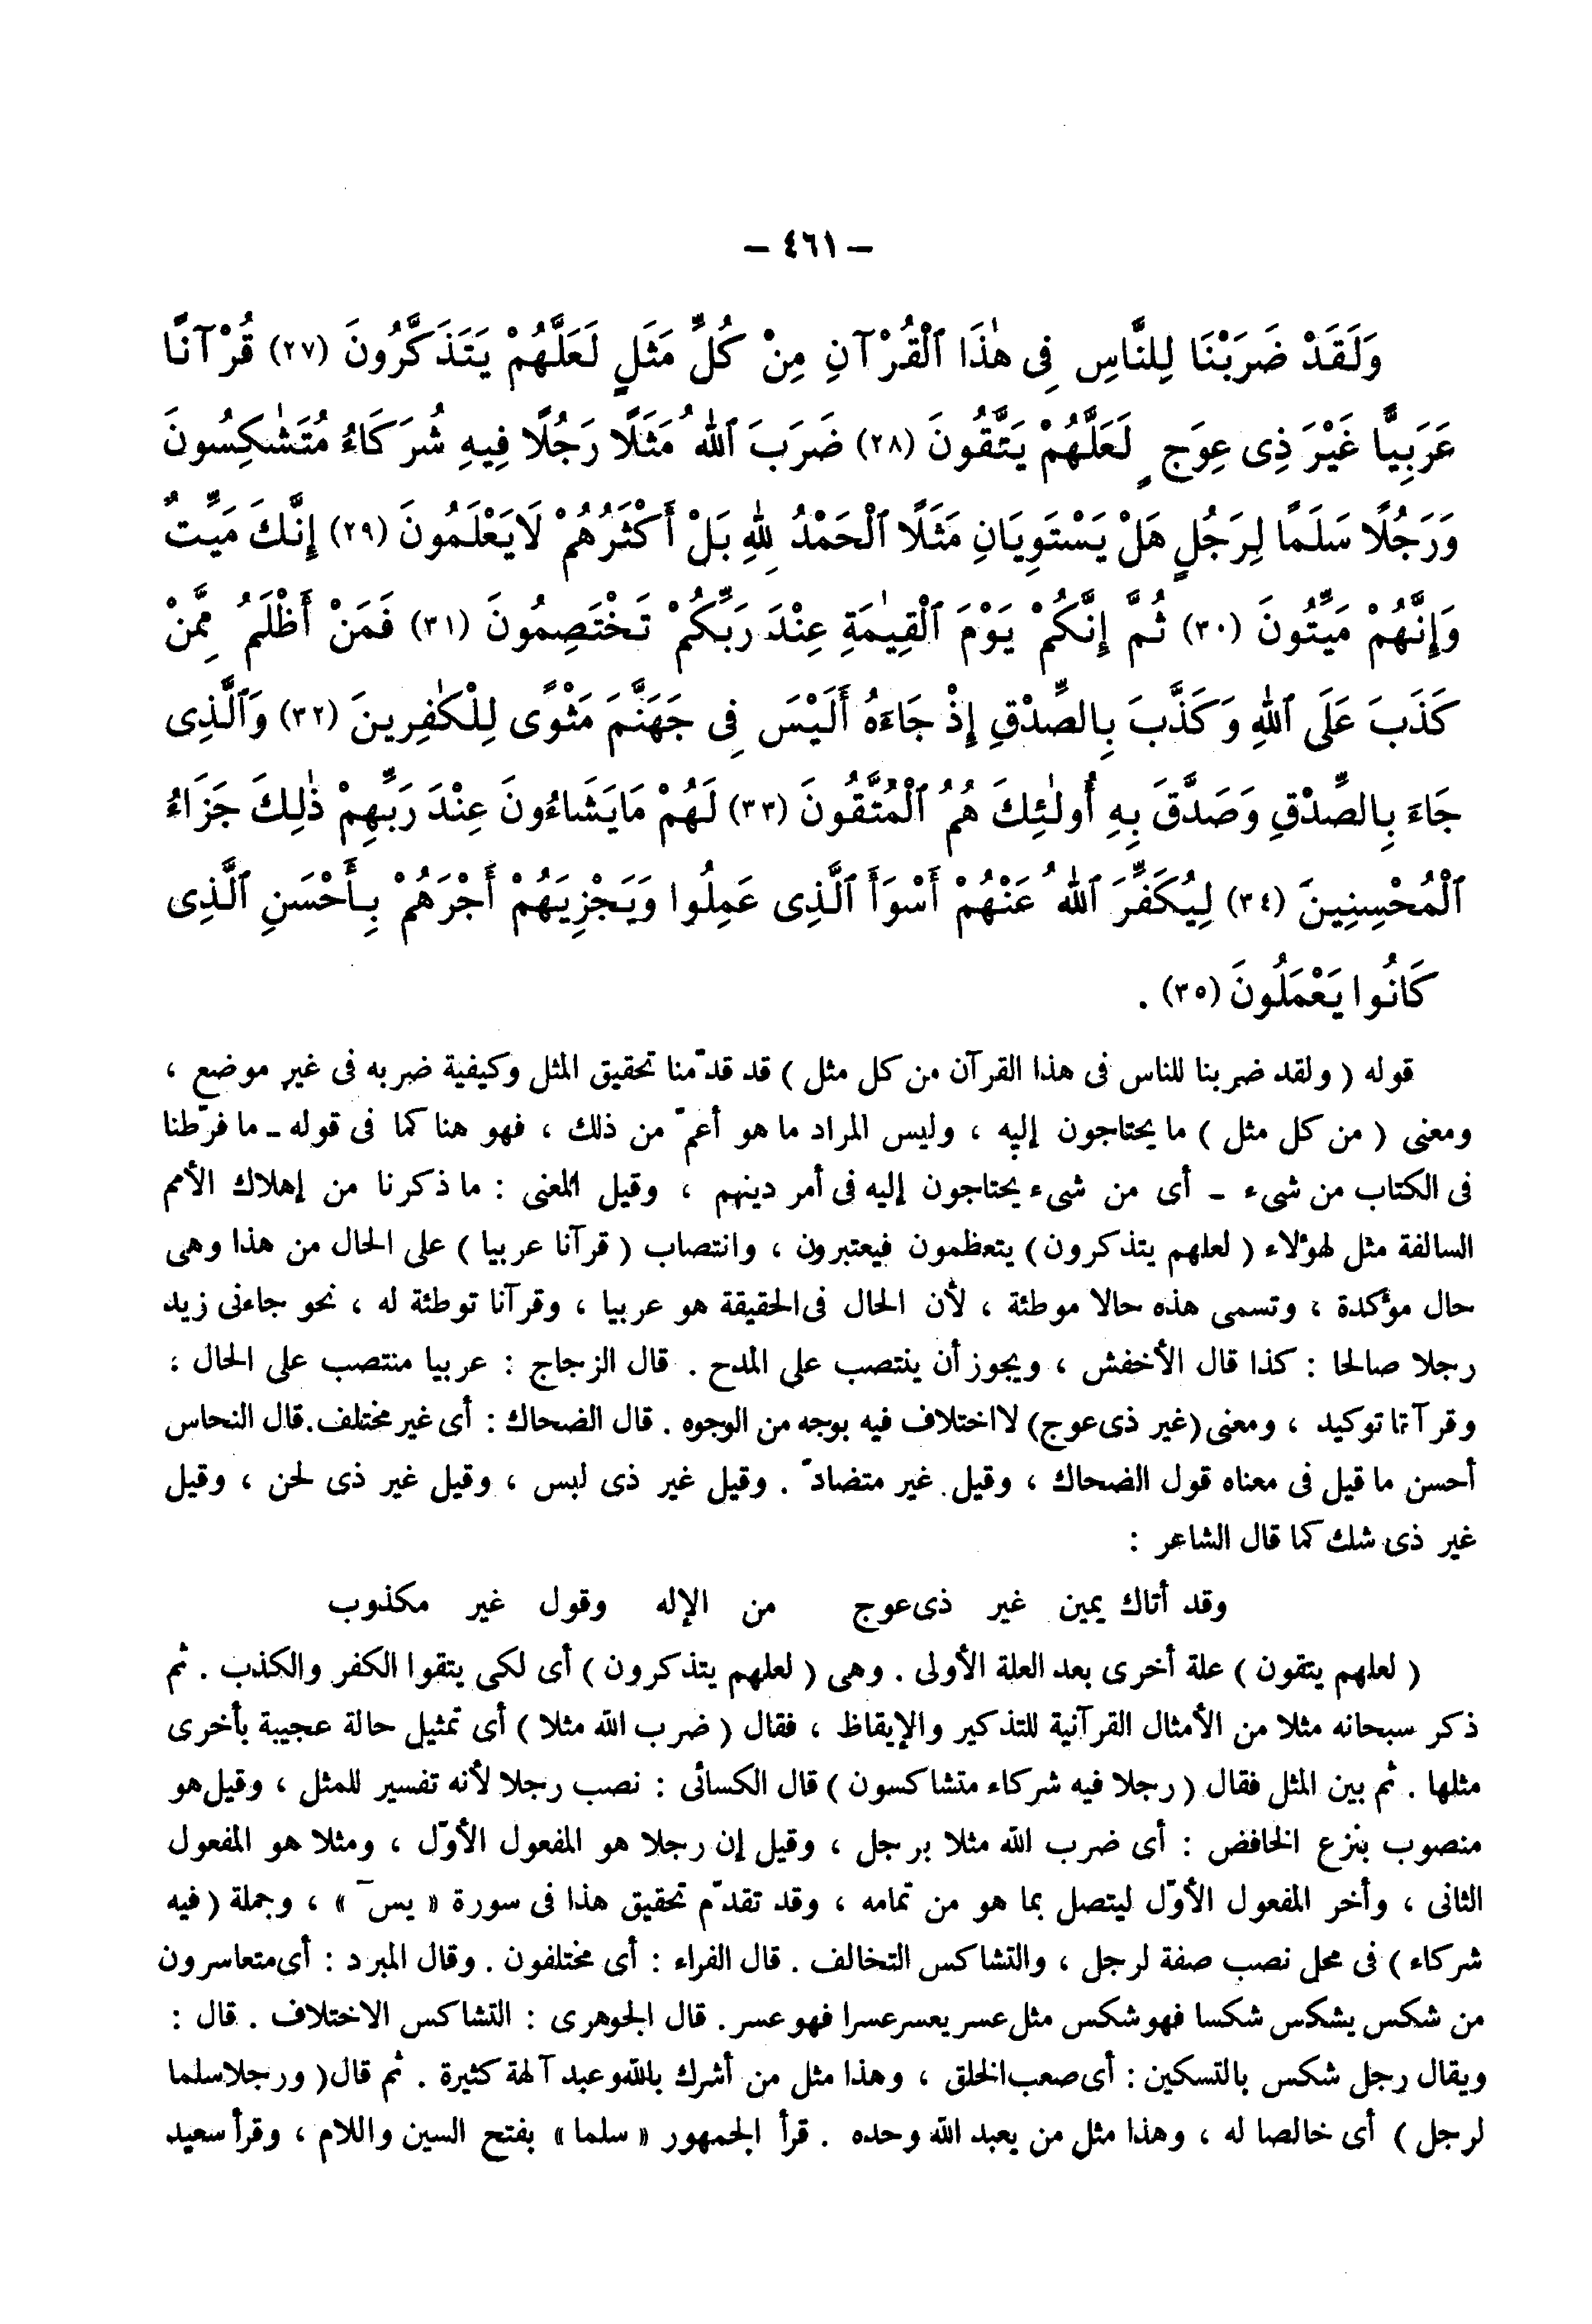 – ٤٦١ –
وَلَقَدْ ضَرَبْنَا لِلنَّاسِ فِى هٰذَا ٱلْقُرْآنِ مِنْ كُلِّ مَثَلٍ لَعَلَّهُمْ يَتَذَكَّرُونَ (٢٧) قُرْآنًا
عَرَبِيًّا غَيْرَ ذِى عِوَجٍ لَعَلَّهُمْ يَتَّقُونَ (٢٨) ضَرَبَ ٱللهُ مَثَلًا رَجُلًا فِيهِ شُرَكَاءُ مُتَشٰكِسُونَ
وَرَجُلًا سَلَمًا لِرَجُلٍ هَلْ يَسْتَوِيَانِ مَثَلًا ٱلْحَمْدُ لِلهِ بَلْ أَكْثَرُهُمْ لَايَعْلَمُونَ (٢٩) إِنَّكَ مَيِّتٌ
وَإِنَّهُمْ مَيِّتُونَ (٣٠) ثُمَّ إِنَّكُمْ يَوْمَ ٱلْقِيٰمَةِ عِنْدَ رَبِّكُمْ تَخْتَصِمُونَ (٣١) فَمَنْ أَظْلَمُ مِمَّنْ
كَذَبَ عَلَى ٱللهِ وَكَذَّبَ بِالصِّدْقِ إِذْ جَاءَهُ أَلَيْسَ فِى جَهَنَّمَ مَثْوًى لِلْكٰفِرِينَ (٣٢) وَٱلَّذِى
جَاءَ بِالصِّدْقِ وَصَدَّقَ بِهِ أُولٰئِكَ هُمُ ٱلْمُتَّقُونَ (٣٣) لَهُمْ مَايَشَاءُونَ عِنْدَ رَبِّهِمْ ذٰلِكَ جَزَاءُ
ٱلْمُحْسِنِينَ (٣٤) لِيُكَفِّرَ ٱللهُ عَنْهُمْ أَسْوَأَ ٱلَّذِى عَمِلُوا وَيَجْزِيَهُمْ أَجْرَهُمْ بِأَحْسَنِ ٱلَّذِى
كَانُوا يَعْمَلُونَ (٣٥) .
قوله ( ولقد ضربنا للناس فى هذا القرآن من كل مثل ) قد قدّمنا تحقيق المثل وكيفية ضربه فى غير موضع ،
ومعنى ( من كل مثل ) ما يحتاجون إليه ، وليس المراد ما هو أعمّ من ذلك ، فهو هنا كما فى قوله ـ ما فرّطنا
فى الكتاب من شىء ـ أى من شىء يحتاجون إليه فى أمر دينهم ، وقيل المعنى : ما ذكرنا من إهلاك الأمم
السالفة مثل لهؤلاء ( لعلهم يتذكرون ) يتعظمون فيعتبرون ، وانتصاب ( قرآنا عربيا ) على الحال من هذا وهى
حال مؤكدة ، وتسمى هذه حالا موطئة ، لأن الحال فى الحقيقة هو عربيا ، وقرآنا توطئة له ، نحو جاءنى زيد
رجلا صالحا : كذا قال الأخفش ، ويجوز أن ينتصب على المدح . قال الزجاج : عربيا منتصب على الحال ،
وقرآنا توكيد ، ومعنى (غير ذى عوج) لا اختلاف فيه بوجه من الوجوه . قال الضحاك : أى غير مختلف. قال النحاس
أحسن ما قيل فى معناه قول الضحاك ، وقيل غير متضادّ . وقيل غير ذى لبس ، وقيل غير ذى لحن ، وقيل
غير ذى شك كما قال الشاعر :
وقد أتاك يمين غير ذى عوج من الإله وقول غير مكذوب
( لعلهم يتقون ) علة أخرى بعد العلة الأولى . وهى ( لعلهم يتذكرون ) أى لكى يتقوا الكفر والكذب . ثم
ذكر سبحانه مثلا من الأمثال القرآنية للتذكير والإيقاظ ، فقال ( ضرب الله مثلا ) أى تمثيل حالة عجيبة بأخرى
مثلها . ثم بين المثل فقال ( رجلا فيه شركاء متشاكسون ) قال الكسائى : نصب رجلا لأنه تفسير للمثل ، وقيل هو
منصوب بنزع الخافض : أى ضرب الله مثلا برجل ، وقيل إن رجلا هو المفعول الأوّل ، ومثلا هو المفعول
الثانى ، وأخر المفعول الأوّل ليتصل بما هو من تمامه ، وقد تقدّم تحقيق هذا فى سورة « يسۤ » ، وجملة ( فيه
شركاء ) فى محل نصب صفة لرجل ، والتشاكس التخالف . قال الفراء : أى مختلفون . وقال المبرد : أى متعاسرون
من شكس يشكس شكسا فهو شكس مثل عسر يعسر عسرا فهو عسر . قال الجوهرى : التشاكس الاختلاف . قال :
ويقال رجل شكس بالتسكين : أى صعب الخلق ، وهذا مثل من أشرك بالله وعبد آلهة كثيرة . ثم قال ( ورجلا سلما
لرجل ) أى خالصا له ، وهذا مثل من يعبد الله وحده . قرأ الجمهور « سلما » بفتح السين واللام ، وقرأ سعيد